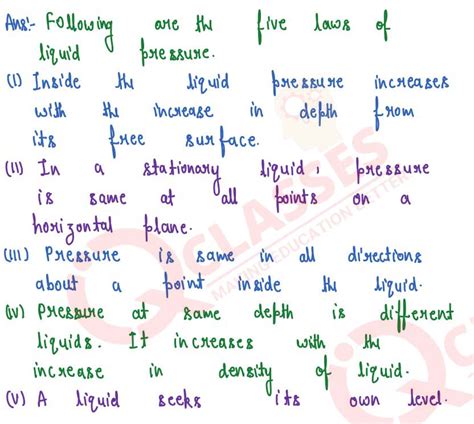 Ans:- Following are the five laws of
liquid pressure.
(I) Inside the liquid pressure increases
with the increase in depth from
its free surface.
(II) In a stationary liquid, pressure
is same at all points on a
horizontal plane.
(III) Pressure is same in all directions
about a point inside the liquid.
(IV) Pressure at same depth is different
liquids. It increases with the
increase in density of liquid.
(V) A liquid seeks its own level.
CLASSES
MAKING EDUCATION BETTER